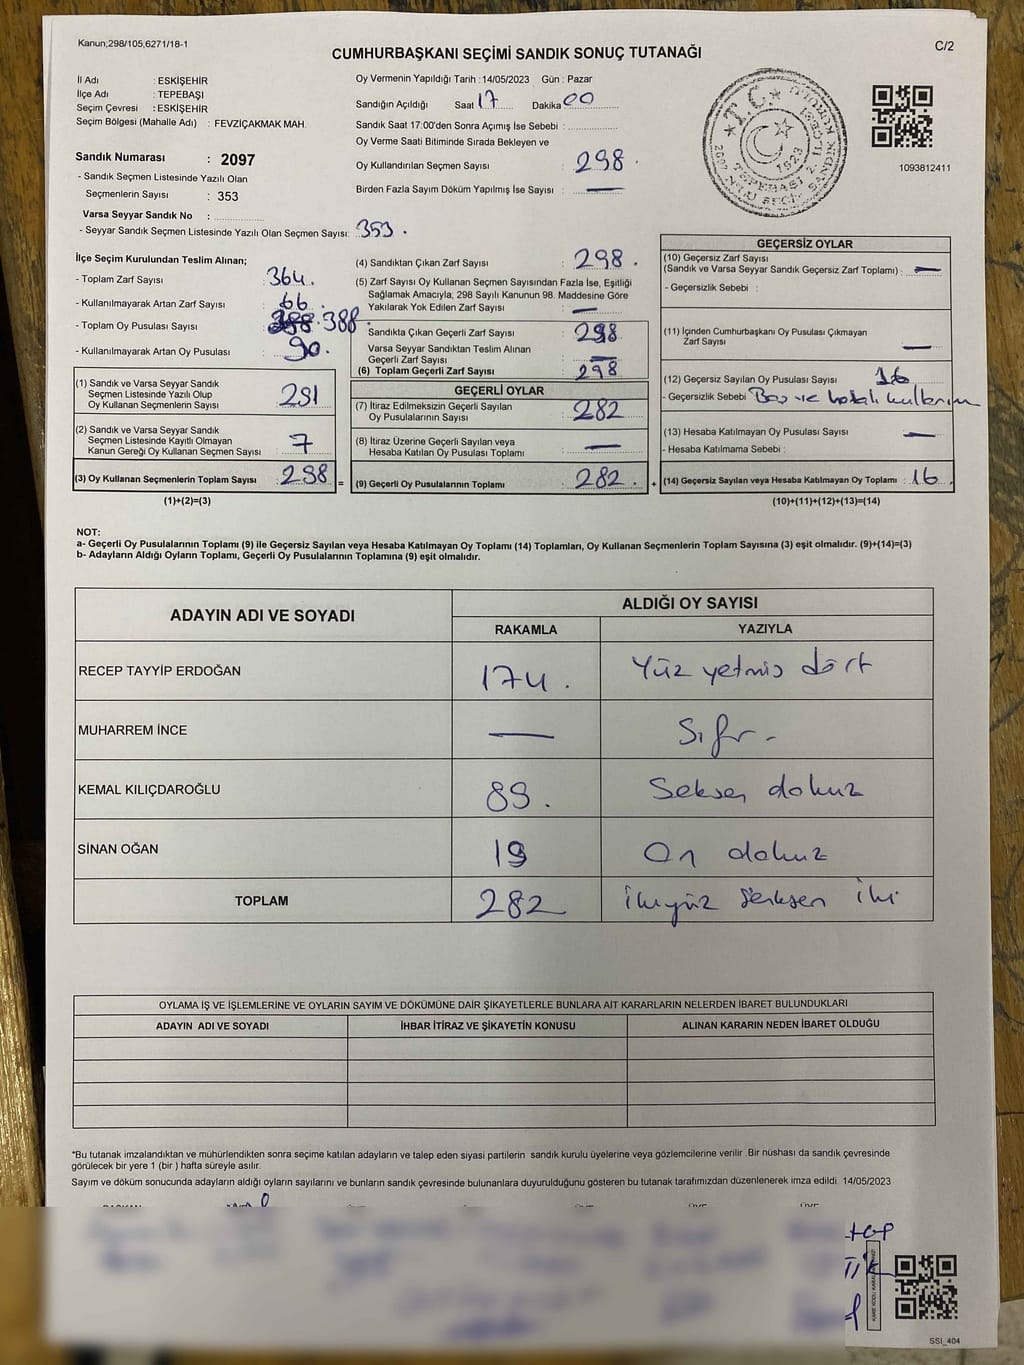 Kanun;298/105,6271/18-1
C/2
CUMHURBAŞKANI SEÇİMİ SANDIK SONUÇ TUTANAĞI
İl Adı : ESKİŞEHİR
İlçe Adı : TEPEBAŞI
Seçim Çevresi : ESKİŞEHİR
Seçim Bölgesi (Mahalle Adı) : FEVZİÇAKMAK MAH.
Sandık Numarası : 2097
- Sandık Seçmen Listesinde Yazılı Olan
Seçmenlerin Sayısı : 353
Varsa Seyyar Sandık No :
- Seyyar Sandık Seçmen Listesinde Yazılı Olan Seçmen Sayısı: 353.
Oy Vermenin Yapıldığı Tarih :14/05/2023 Gün : Pazar
Sandığın Açıldığı Saat 17 Dakika 00
Sandık Saat 17:00'den Sonra Açımış İse Sebebi :
Oy Verme Saati Bitiminde Sırada Bekleyen ve
Oy Kullandırılan Seçmen Sayısı : 298.
Birden Fazla Sayım Döküm Yapılmış İse Sayısı : —
T.C.
1923
TEPEBAŞI 2. İLÇE
1093812411
İlçe Seçim Kurulundan Teslim Alınan;
- Toplam Zarf Sayısı : 364.
- Kullanılmayarak Artan Zarf Sayısı : 66
- Toplam Oy Pusulası Sayısı : 388
- Kullanılmayarak Artan Oy Pusulası : 90.
(1) Sandık ve Varsa Seyyar Sandık
Seçmen Listesinde Yazılı Olup
Oy Kullanan Seçmenlerin Sayısı : 291
(2) Sandık ve Varsa Seyyar Sandık
Seçmen Listesinde Kayıtlı Olmayan
Kanun Gereği Oy Kullanan Seçmen Sayısı : 7
(3) Oy Kullanan Seçmenlerin Toplam Sayısı : 298
(1)+(2)=(3)
(4) Sandıktan Çıkan Zarf Sayısı : 298.
(5) Zarf Sayısı Oy Kullanan Seçmen Sayısından Fazla İse, Eşitliği
Sağlamak Amacıyla; 298 Sayılı Kanunun 98. Maddesine Göre
Yakılarak Yok Edilen Zarf Sayısı : —
Sandıkta Çıkan Geçerli Zarf Sayısı : 298
Varsa Seyyar Sandıktan Teslim Alınan
Geçerli Zarf Sayısı : —
(6) Toplam Geçerli Zarf Sayısı : 298
GEÇERLİ OYLAR
(7) İtiraz Edilmeksizin Geçerli Sayılan
Oy Pusulalarının Sayısı : 282
(8) İtiraz Üzerine Geçerli Sayılan veya
Hesaba Katılan Oy Pusulası Toplamı : —
= (9) Geçerli Oy Pusulalarının Toplamı : 282. +
GEÇERSİZ OYLAR
(10) Geçersiz Zarf Sayısı
(Sandık ve Varsa Seyyar Sandık Geçersiz Zarf Toplamı) : —
- Geçersizlik Sebebi :
(11) İçinden Cumhurbaşkanı Oy Pusulası Çıkmayan
Zarf Sayısı : —
(12) Geçersiz Sayılan Oy Pusulası Sayısı : 16
- Geçersizlik Sebebi : Boş ve hatalı kullanım
(13) Hesaba Katılmayan Oy Pusulası Sayısı : —
- Hesaba Katılmama Sebebi :
(14) Geçersiz Sayılan veya Hesaba Katılmayan Oy Toplamı : 16.
(10)+(11)+(12)+(13)=(14)
NOT:
a- Geçerli Oy Pusulalarının Toplamı (9) ile Geçersiz Sayılan veya Hesaba Katılmayan Oy Toplamı (14) Toplamları, Oy Kullanan Seçmenlerin Toplam Sayısına (3) eşit olmalıdır. (9)+(14)=(3)
b- Adayların Aldığı Oyların Toplamı, Geçerli Oy Pusulalarının Toplamına (9) eşit olmalıdır.
ADAYIN ADI VE SOYADI
ALDIĞI OY SAYISI
RAKAMLA YAZIYLA
RECEP TAYYİP ERDOĞAN 174. Yüz yetmiş dört
MUHARREM İNCE — Sıfır -
KEMAL KILIÇDAROĞLU 89. Seksen dokuz
SİNAN OĞAN 19 On dokuz
TOPLAM 282 İkiyüz seksen iki
OYLAMA İŞ VE İŞLEMLERİNE VE OYLARIN SAYIM VE DÖKÜMÜNE DAİR ŞİKAYETLERLE BUNLARA AİT KARARLARIN NELERDEN İBARET BULUNDUKLARI
ADAYIN ADI VE SOYADI İHBAR İTİRAZ VE ŞİKAYETİN KONUSU ALINAN KARARIN NEDEN İBARET OLDUĞU
*Bu tutanak imzalandıktan ve mühürlendikten sonra seçime katılan adayların ve talep eden siyasi partilerin sandık kurulu üyelerine veya gözlemcilerine verilir .Bir nüshası da sandık çevresinde
görülecek bir yere 1 (bir ) hafta süreyle asılır.
Sayım ve döküm sonucunda adayların aldığı oyların sayılarını ve bunların sandık çevresinde bulunanlara duyurulduğunu gösteren bu tutanak tarafımızdan düzenlenerek imza edildi. 14/05/2023
SSI_404